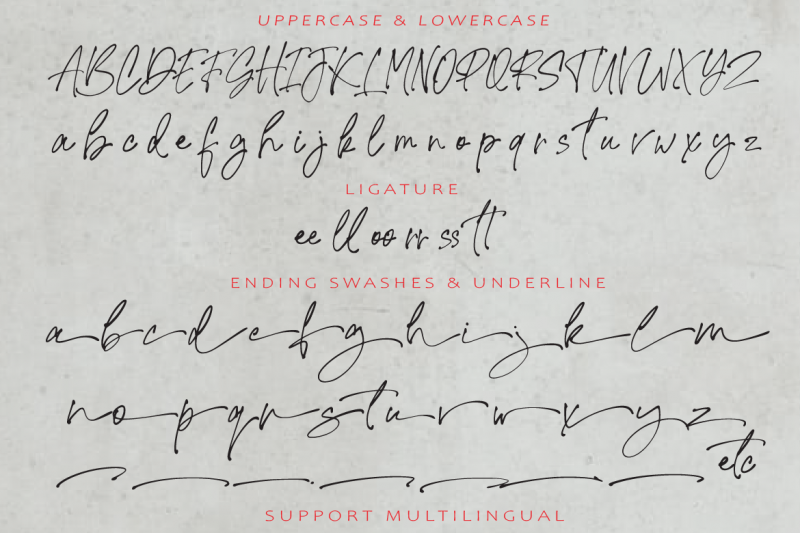 UPPERCASE & LOWERCASE
ABCDEFGHIJKLMNOPQRSTUVWXYZ
abcdefghijklmnopqrstuvwxyz
LIGATURE
ee ll oo rr ss tt
ENDING SWASHES & UNDERLINE
abcdefghijklm
nopqrstuvwxyz
etc
SUPPORT MULTILINGUAL